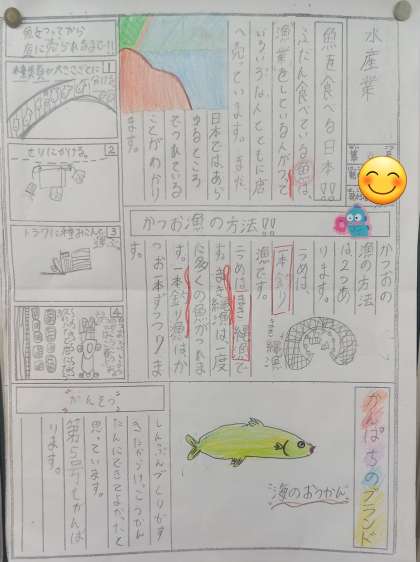 水産業
魚を食べる日本!!
ふだん食べている
漁業をしている
へ売っています。また、
日本ではあら
ゆるところ
でつれている
ことがわかり
ます。
魚をとってから
店に売られるまで!!
1
種類、大きさごとに分ける
2
せりにかける。
3
トラックに積みこんで運ぶ
4
かつお漁の方法!!
かつおの
漁の方法
は、2つあ
ります。
一つめは、
一本釣り
漁です。
二つめはまき網漁で
す。まき網漁は一度
に多くの魚がつれま
す。一本釣り漁は、か
つお一本ずつつります。
まき網漁
かんそう
しんぶんづくりがす
きだから、けっこうかん
たんにできてよかったと
思っています。
第5号もがんば
ります。
かんぱちのブランド
海のおうかん